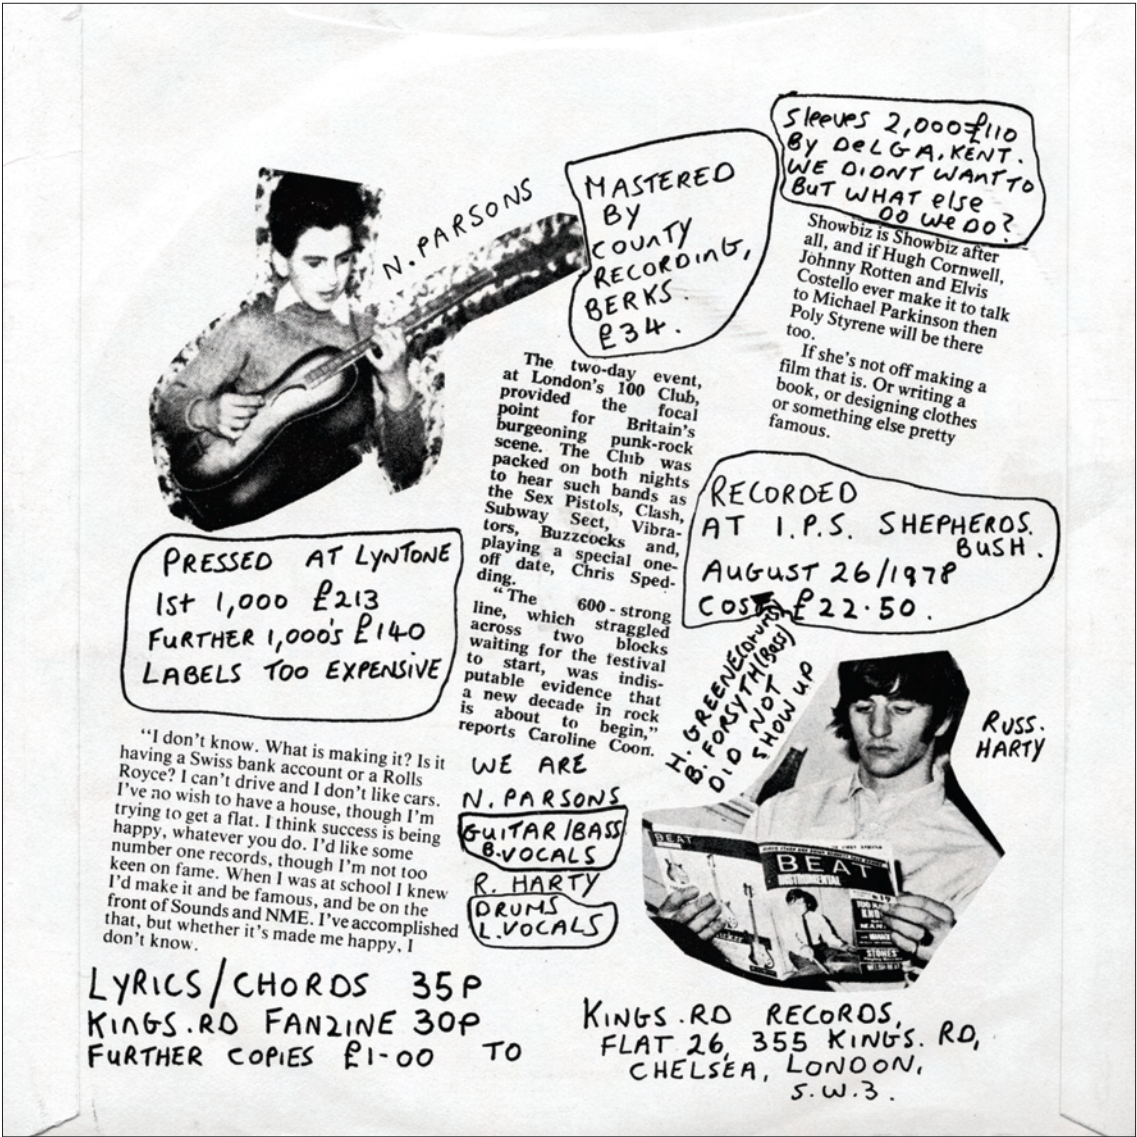 Sleeves 2,000=£110
BY DELGA, KENT.
WE DIDNT WANT TO
BUT WHAT else
DO WE DO?
Showbiz is Showbiz after
all, and if Hugh Cornwell,
Johnny Rotten and Elvis
Costello ever make it to talk
to Michael Parkinson then
Poly Styrene will be there
too.
If she's not off making a
film that is. Or writing a
book, or designing clothes
or something else pretty
famous.
N. PARSONS
MASTERED
BY
COUNTY
RECORDING,
BERKS.
£34.
The two-day event,
at London's 100 Club,
provided the focal
point for Britain's
burgeoning punk-rock
scene. The Club was
packed on both nights
to hear such bands as
the Sex Pistols, Clash,
Subway Sect, Vibra-
tors, Buzzcocks and,
playing a special one-
off date, Chris Sped-
ding.
"The 600-strong
line, which straggled
across two blocks
waiting for the festival
to start, was indis-
putable evidence that
a new decade in rock
is about to begin,"
reports Caroline Coon.
RECORDED
AT I.P.S. SHEPHERDS.
BUSH.
AUGUST 26/1978
COST £22.50.
H. GREENE (DRUMS)
B. FORSYTH (BASS)
DID NOT
SHOW UP
PRESSED AT LYNTONE
1st 1,000 £213
FURTHER 1,000'S £140
LABELS TOO EXPENSIVE
"I don't know. What is making it? Is it
having a Swiss bank account or a Rolls
Royce? I can't drive and I don't like cars.
I've no wish to have a house, though I'm
trying to get a flat. I think success is being
happy, whatever you do. I'd like some
number one records, though I'm not too
keen on fame. When I was at school I knew
I'd make it and be famous, and be on the
front of Sounds and NME. I've accomplished
that, but whether it's made me happy, I
don't know.
WE ARE
N. PARSONS
GUITAR/BASS
B.VOCALS
R. HARTY
DRUMS
L.VOCALS
RUSS.
HARTY
BEAT
BEAT
INSTRUMENTAL
STONES
LYRICS/CHORDS 35P
KINGS.RD FANZINE 30P
FURTHER COPIES £1-00 TO
KINGS.RD RECORDS,
FLAT 26, 355 KINGS. RD,
CHELSEA, LONDON,
S.W.3.